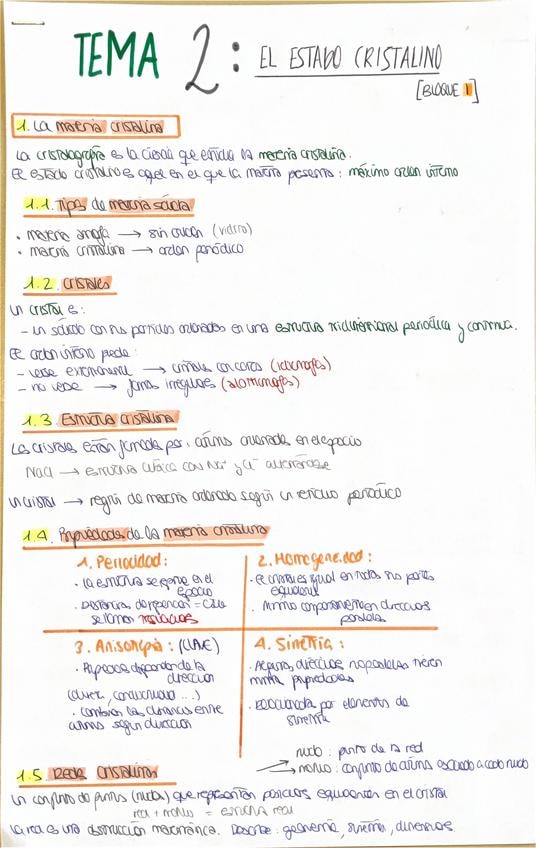 TEMA 2: EL ESTADO CRISTALINO
[BLOQUE 1]
1. La materia cristalina
La cristalografía es la ciencia que estudia la materia cristalina.
El estado cristalino es aquel en el que la materia presenta: máximo orden interno
1.1. Tipos de materia sólida
• materia amorfa → sin orden (vidrio)
• materia cristalina → orden periódico
1.2. Cristales
Un cristal es:
- un sólido con sus partículas ordenadas en una estructura tridimensional periódica y continua.
El orden interno puede:
- verse externamente → cristales con caras (idiomorfos)
- no verse → formas irregulares (alotriomorfos)
1.3 Estructura cristalina
Los cristales están formados por: átomos ordenados en el espacio
NaCl → estructura cúbica con Na⁺ y Cl⁻ alternándose
Un cristal → región de materia ordenada según un retículo periódico
1.4. Propiedades de la materia cristalina
1. Periocidad:
• La estructura se repite en el espacio
• Distancias de repetición = cte
se llaman traslaciones
2. Homogeneidad:
• El cristal es igual en todas sus partes
equivalentes
• Mismo comportamiento en direcciones
paralelas
3. Anisotropía: (CLAVE)
• Propiedades dependen de la
dirección
(dureza, conductividad ...)
• Cambian las distancias entre
átomos según dirección
4. Simetría:
• Algunas direcciones no paralelas tienen
mismas propiedades
• Relacionada por elementos de
simetría
1.5 Redes cristalinas
nudo: punto de la red
motivo: conjunto de átomos asociado a cada nudo
Un conjunto de puntos (nudos) que representan posiciones equivalentes en el cristal
red + motivo = estructura real
La red es una abstracción matemática. Describe: geometría, simetría, dimensiones